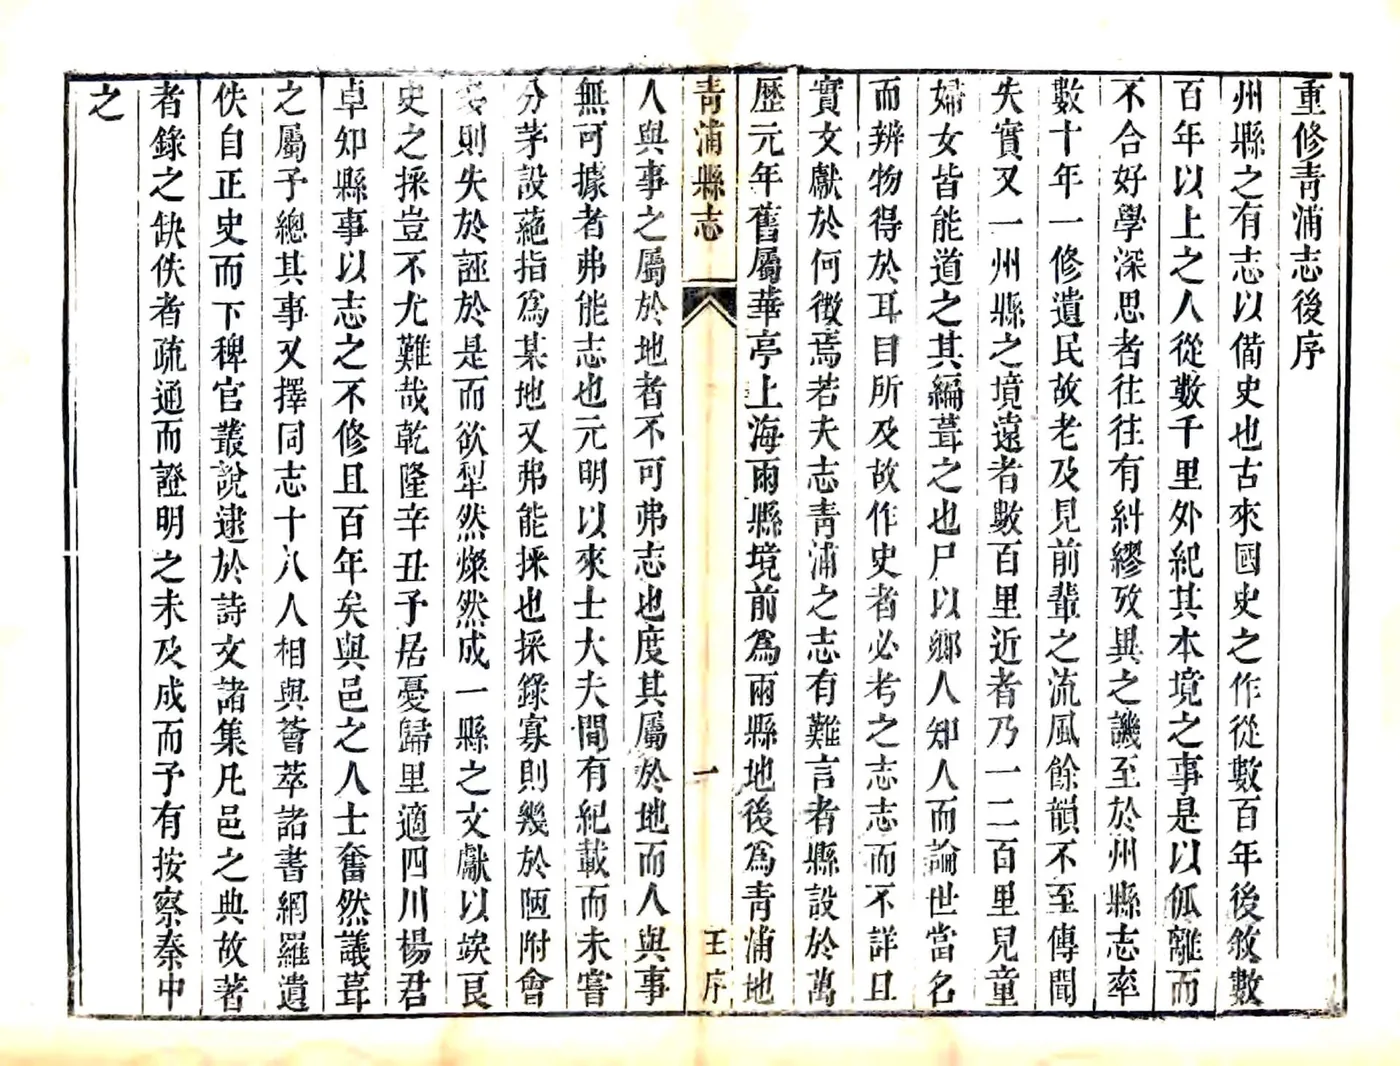 重修青浦志後序
州縣之有志以備史也古來國史之作從數百年後敘數
百年以上之人從數千里外紀其本境之事是以仳離而
不合好學深思者往往有糾繆攷異之譏至於州縣志率
數十年一修遺民故老及見前輩之流風餘韻不至傳聞
失實又一州縣之境遠者數百里近者乃一二百里兒童
婦女皆能道之其編葺之也尸以鄉人知人而論世當名
而辨物得於耳目所及故作史者必考之志志而不詳且
實文獻於何徵焉若夫志青浦之志有難言者縣設於萬
歷元年舊屬華亭上海兩縣境前爲兩縣地後爲青浦地
青浦縣志
一
王序
人與事之屬於地者不可弗志也度其屬於地而人與事
無可據者弗能志也元明以來士大夫間有紀載而未嘗
分茅設蕝指爲某地又弗能採也採錄寡則幾於陋附會
多則失於誣於是而欲犁然燦然成一縣之文獻以竢良
史之採豈不尤難哉乾隆辛丑予居憂歸里適四川楊君
卓知縣事以志之不修且百年矣與邑之人士奮然議葺
之屬予總其事又擇同志十八人相與薈萃諸書網羅遺
佚自正史而下稗官叢說逮於詩文諸集凡邑之典故著
者錄之缺佚者疏通而證明之未及成而予有按察秦中
之